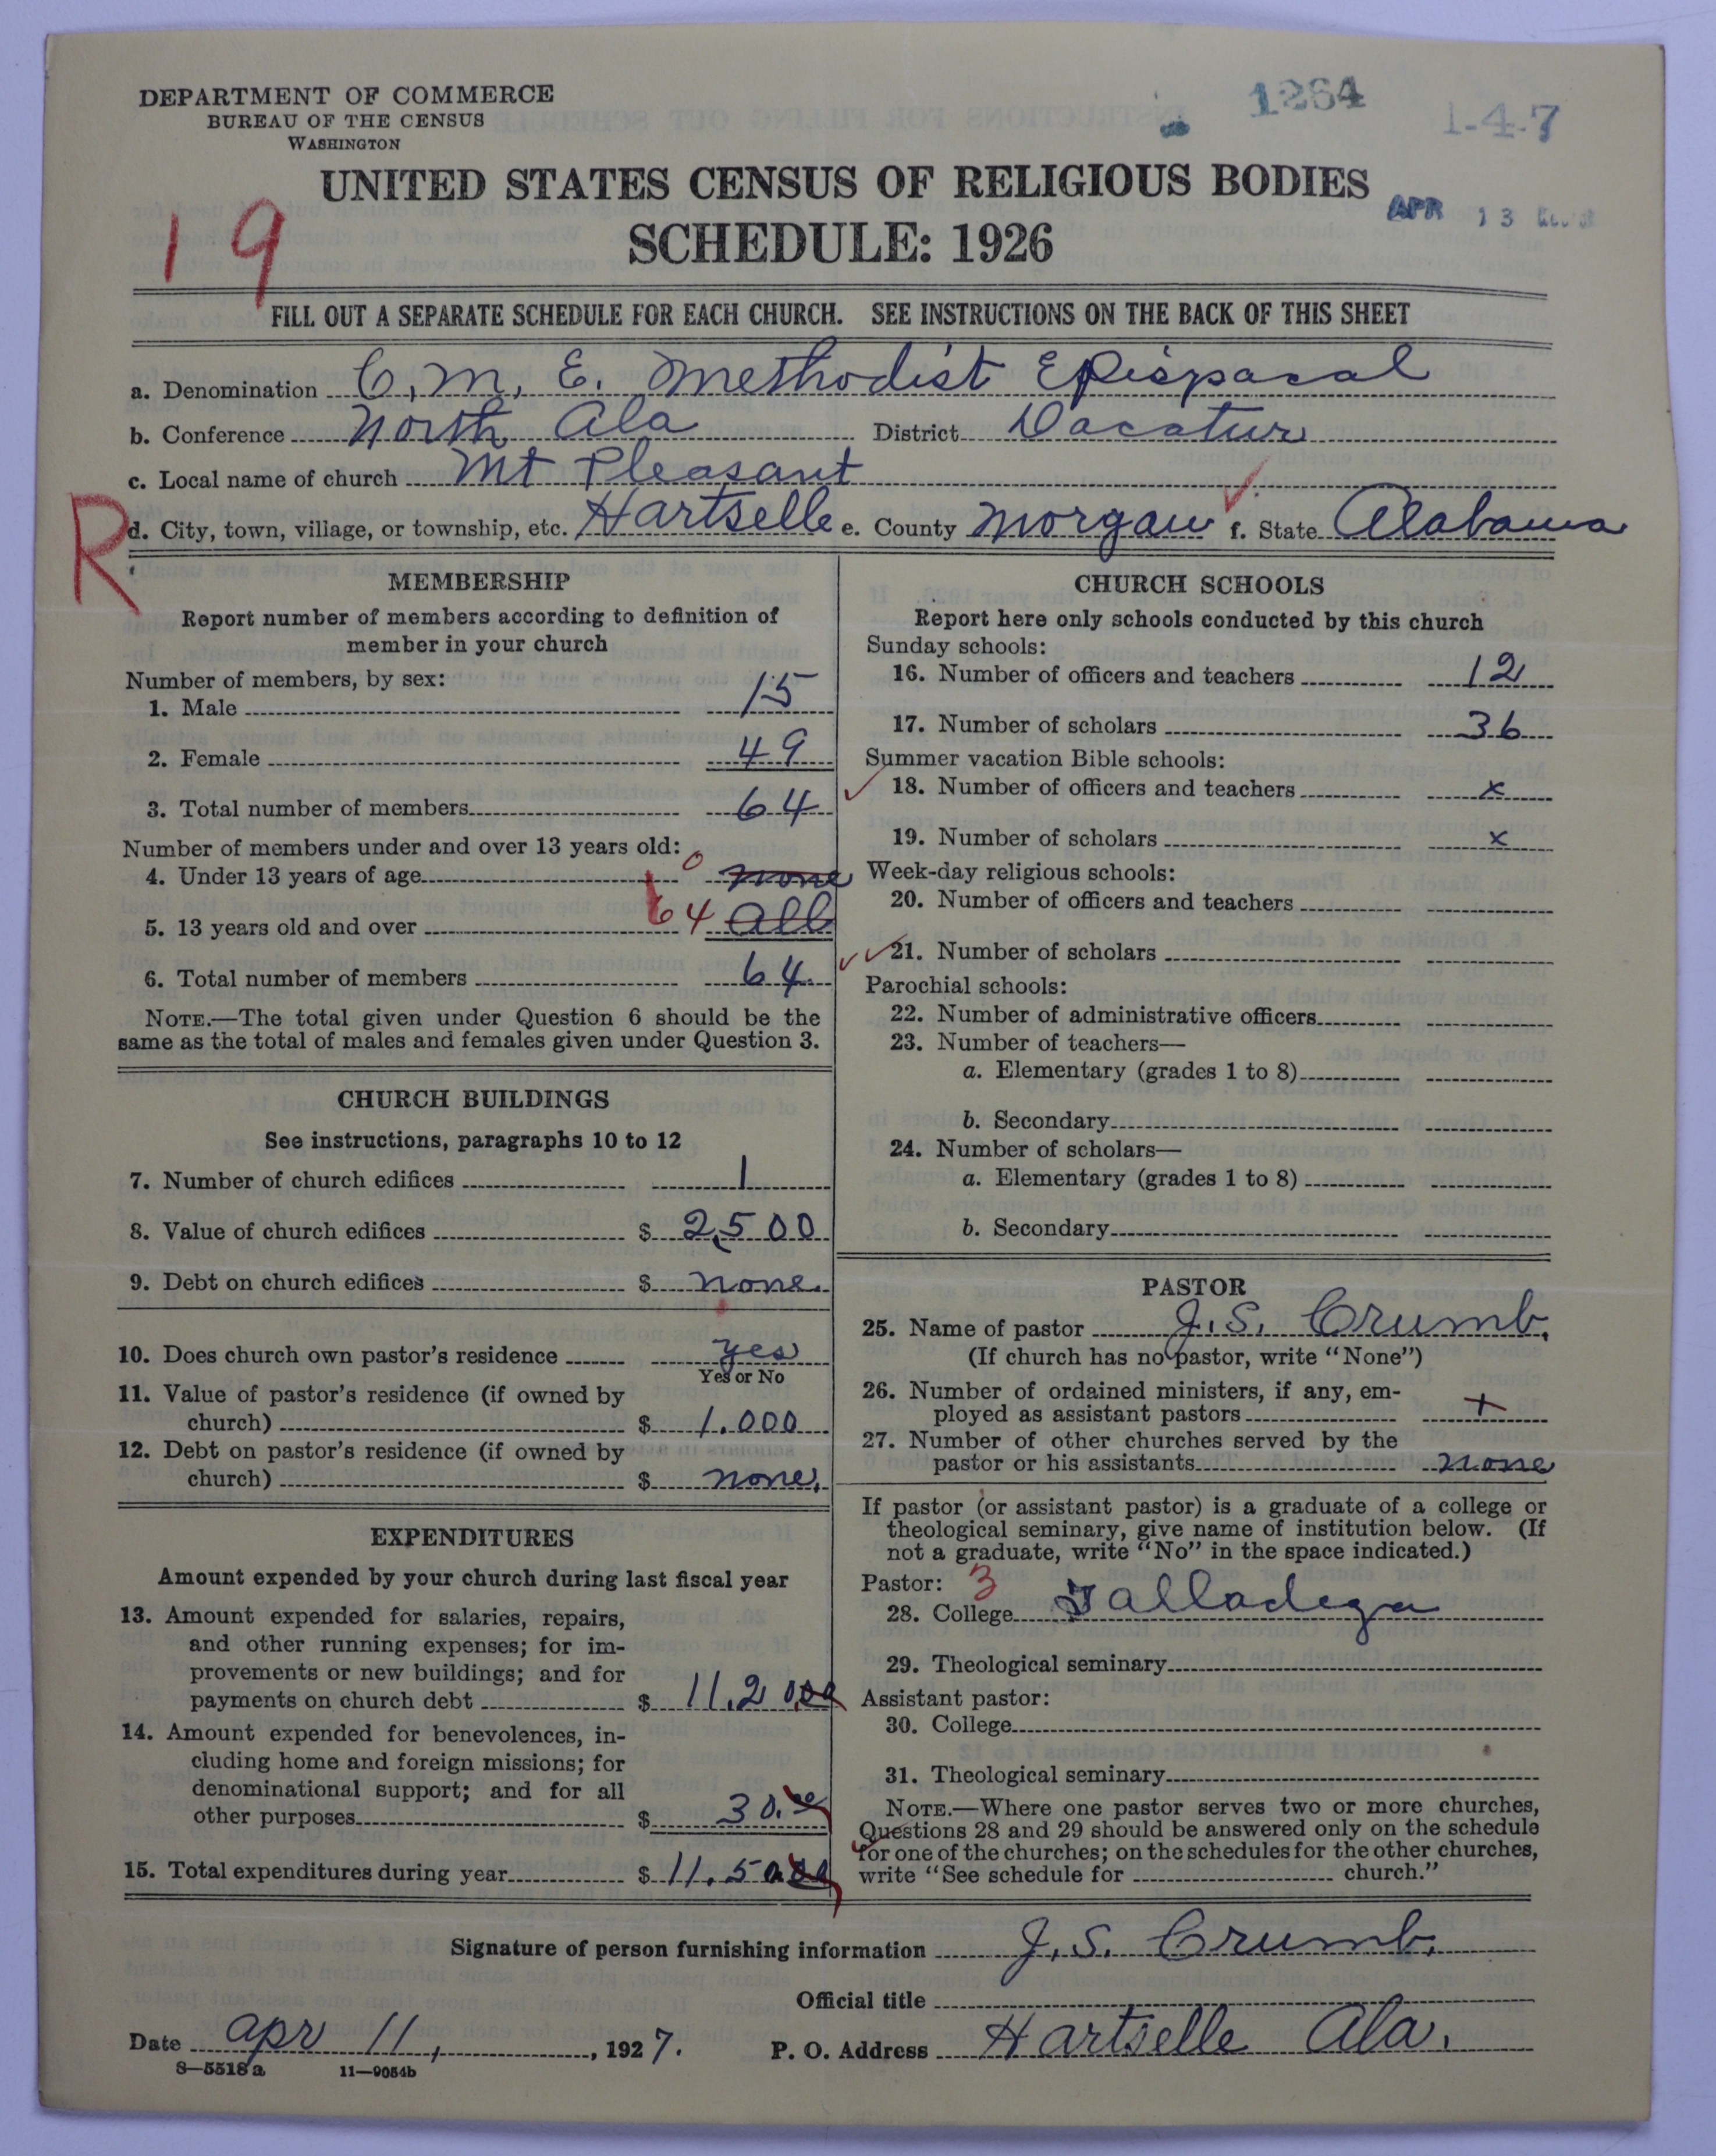 DEPARTMENT OF COMMERCE
BUREAU OF THE CENSUS
WASHINGTON
1264
1-4-7
UNITED STATES CENSUS OF RELIGIOUS BODIES
APR 13
19
SCHEDULE: 1926
FILL OUT A SEPARATE SCHEDULE FOR EACH CHURCH. SEE INSTRUCTIONS ON THE BACK OF THIS SHEET
a. Denomination C. M. E. Methodist Epispacal
b. Conference North Ala District Dacatur
c. Local name of church Mt Pleasant
R
d. City, town, village, or township, etc. Hartselle e. County Morgan f. State Alabama
MEMBERSHIP
Report number of members according to definition of
member in your church
Number of members, by sex:
1. Male 15
2. Female 49
3. Total number of members 64
Number of members under and over 13 years old:
4. Under 13 years of age 0 none
5. 13 years old and over 64 all
6. Total number of members 64
NOTE.—The total given under Question 6 should be the
same as the total of males and females given under Question 3.
CHURCH BUILDINGS
See instructions, paragraphs 10 to 12
7. Number of church edifices 1
8. Value of church edifices $ 2,500
9. Debt on church edifices $ none.
10. Does church own pastor's residence yes
Yes or No
11. Value of pastor's residence (if owned by
church) $ 1.000
12. Debt on pastor's residence (if owned by
church) $ none.
EXPENDITURES
Amount expended by your church during last fiscal year
13. Amount expended for salaries, repairs,
and other running expenses; for im-
provements or new buildings; and for
payments on church debt $ 11.20.00
14. Amount expended for benevolences, in-
cluding home and foreign missions; for
denominational support; and for all
other purposes $ 30.00
15. Total expenditures during year $ 11.50.00
CHURCH SCHOOLS
Report here only schools conducted by this church
Sunday schools:
16. Number of officers and teachers 12
17. Number of scholars 36
Summer vacation Bible schools:
18. Number of officers and teachers x
19. Number of scholars x
Week-day religious schools:
20. Number of officers and teachers
21. Number of scholars
Parochial schools:
22. Number of administrative officers
23. Number of teachers—
a. Elementary (grades 1 to 8)
b. Secondary
24. Number of scholars—
a. Elementary (grades 1 to 8)
b. Secondary
PASTOR
25. Name of pastor J. S. Crumb.
(If church has no pastor, write "None")
26. Number of ordained ministers, if any, em-
ployed as assistant pastors +
27. Number of other churches served by the
pastor or his assistants none
If pastor (or assistant pastor) is a graduate of a college or
theological seminary, give name of institution below. (If
not a graduate, write "No" in the space indicated.)
Pastor: 3
28. College Talladega
29. Theological seminary
Assistant pastor:
30. College
31. Theological seminary
NOTE.—Where one pastor serves two or more churches,
Questions 28 and 29 should be answered only on the schedule
for one of the churches; on the schedules for the other churches,
write "See schedule for church."
Signature of person furnishing information J. S. Crumb.
Official title
Date apr 11, 1927. P. O. Address Hartselle Ala.
8—5518 a 11—9054b